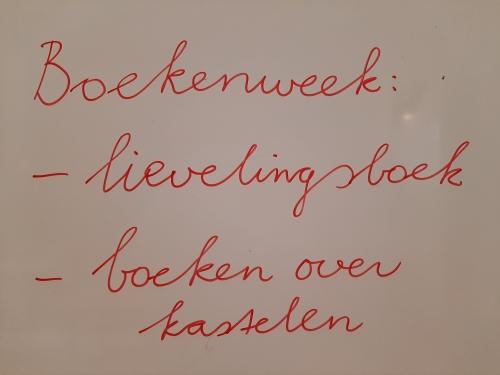 Boekenweek:
- lievelingsboek
- boeken over
kastelen